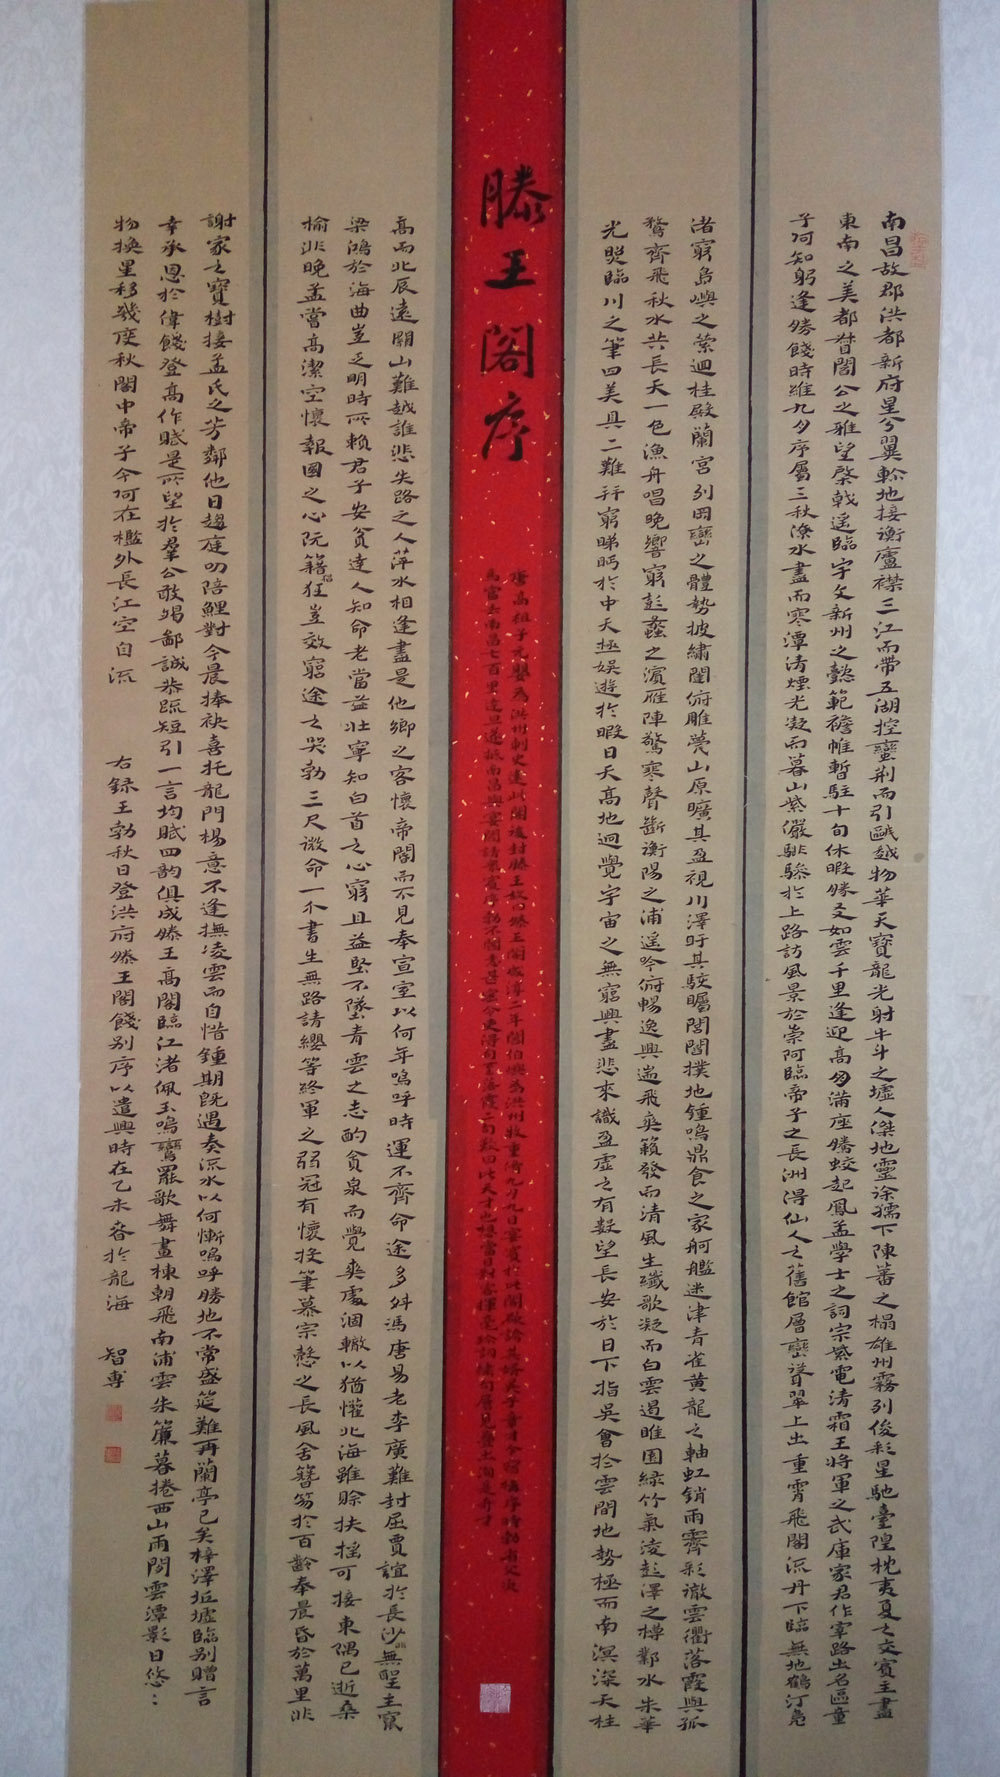 南昌故郡洪都新府星分翼軫地接衡廬襟三江而帶五湖控蠻荊而引甌越物華天寶龍光射牛斗之墟人傑地靈徐孺下陳蕃之榻雄州霧列俊彩星馳臺隍枕夷夏之交賓主盡
東南之美都督閻公之雅望棨戟遙臨宇文新州之懿範襜帷暫駐十旬休暇勝友如雲千里逢迎高朋滿座騰蛟起鳳孟學士之詞宗紫電清霜王將軍之武庫家君作宰路出名區童
子何知躬逢勝餞時維九月序屬三秋潦水盡而寒潭清煙光凝而暮山紫儼驂騑於上路訪風景於崇阿臨帝子之長洲得仙人之舊館層巒聳翠上出重霄飛閣流丹下臨無地鶴汀鳧
渚窮島嶼之縈迴桂殿蘭宮列岡巒之體勢披繡闥俯雕甍山原曠其盈視川澤盱其駭矚閭閻撲地鍾鳴鼎食之家舸艦迷津青雀黃龍之軸虹銷雨霽彩徹雲衢落霞與孤
鶩齊飛秋水共長天一色漁舟唱晚響窮彭蠡之濱雁陣驚寒聲斷衡陽之浦遙吟俯暢逸興遄飛爽籟發而清風生纖歌凝而白雲遏睢園綠竹氣淩彭澤之樽鄴水朱華
光照臨川之筆四美具二難并窮睇眄於中天極娛遊於暇日天高地迥覺宇宙之無窮興盡悲來識盈虛之有數望長安於日下指吳會於雲間地勢極而南溟深天柱
滕王閣序
唐高祖子元嬰為洪州刺史建此閣後封滕王故曰滕王閣咸淳二年閻伯嶼為洪州牧重修九月九日宴賓於此閣欲誇其婿吳子章才令宿構序時勃省父次
馬當去南昌七百里
高而北辰遠關山難越誰悲失路之人萍水相逢盡是他鄉之客懷帝閽而不見奉宣室以何年嗚呼時運不齊命途多舛馮唐易老李廣難封屈賈誼於長沙無聖主竄
梁鴻於海曲豈乏明時所賴君子安貧達人知命老當益壯寧知白首之心窮且益堅不墜青雲之志酌貪泉而覺爽處涸轍以猶懽北海雖賒扶搖可接東隅已逝桑
榆非晚孟嘗高潔空懷報國之心阮籍狂豈效窮途之哭勃三尺微命一介書生無路請纓等終軍之弱冠有懷投筆慕宗愨之長風舍簪笏於百齡奉晨昏於萬里非
謝家之寶樹接孟氏之芳鄰他日趨庭叨陪鯉對今晨捧袂喜托龍門楊意不逢撫凌雲而自惜鍾期既遇奏流水以何慚嗚呼勝地不常盛筵難再蘭亭已矣梓澤丘墟臨別贈言
幸承恩於偉餞登高作賦是所望於羣公敢竭鄙誠恭疏短引一言均賦四韵俱成滕王高閣臨江渚佩玉鳴鸞罷歌舞畫棟朝飛南浦雲朱簾暮捲西山雨閒雲潭影日悠:
物換星移幾度秋閣中帝子今何在檻外長江空自流 右録王勃秋日登洪府滕王閣餞別序以遣興時在乙未春於龍海 智專